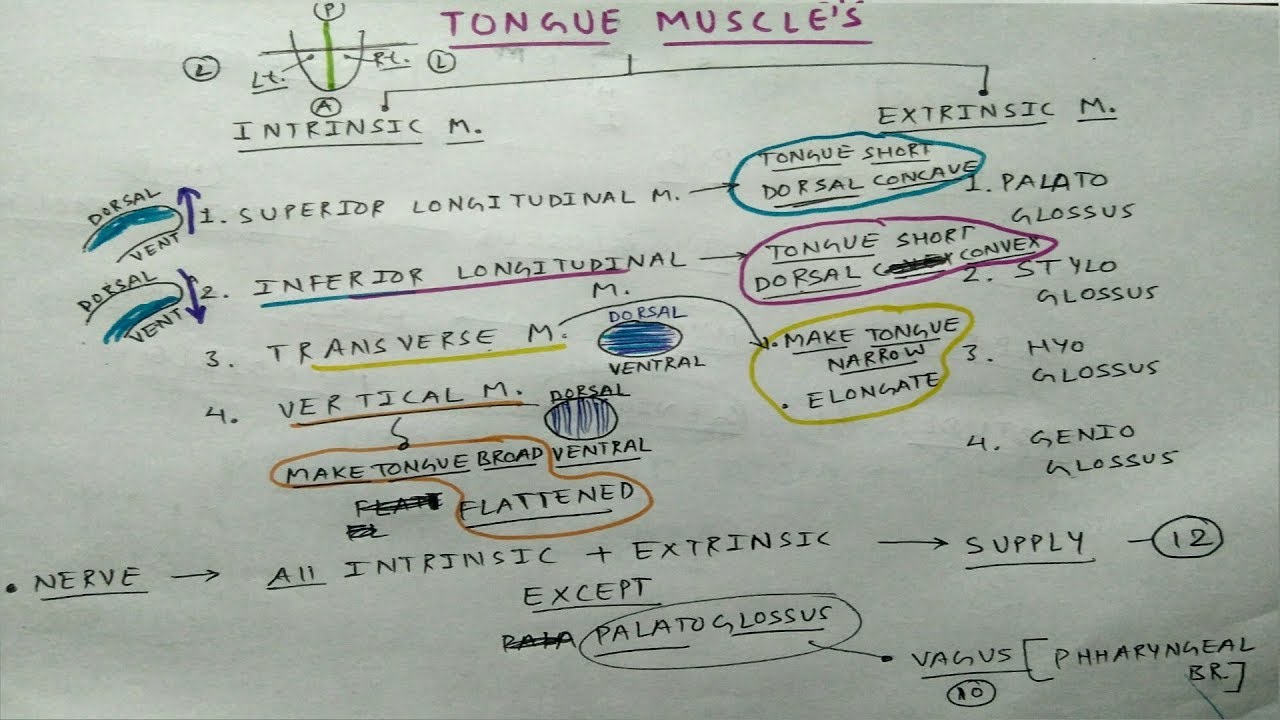 (P)
TONGUE MUSCLE'S
L
Lt.
Rt.
L
A
INTRINSIC M.
EXTRINSIC M.
DORSAL
VENT
1. SUPERIOR LONGITUDINAL M. →
TONGUE SHORT
DORSAL CONCAVE
1. PALATO
GLOSSUS
DORSAL
VENT
2. INFERIOR LONGITUDINAL
M.
TONGUE SHORT
DORSAL CONVEX
2. STYLO
GLOSSUS
3. TRANSVERSE M.
DORSAL
VENTRAL
• MAKE TONGUE
NARROW
• ELONGATE
3. HYO
GLOSSUS
4. VERTICAL M.
DORSAL
VENTRAL
MAKE TONGUE BROAD
FLATTENED
4. GENIO
GLOSSUS
• NERVE → All INTRINSIC + EXTRINSIC → SUPPLY - 12
EXCEPT
PALATOGLOSSUS
• VAGUS [PHHARYNGEAL
BR.]
10